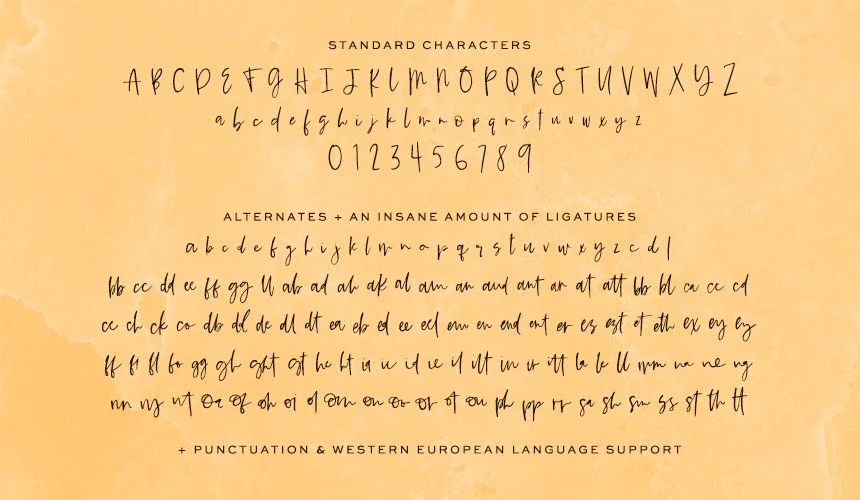 STANDARD CHARACTERS
A B C D E F G H I J K L M N O P Q R S T U V W X Y Z
a b c d e f g h i j k l m n o p q r s t u v w x y z
0 1 2 3 4 5 6 7 8 9
ALTERNATES + AN INSANE AMOUNT OF LIGATURES
a b c d e f g h i j k l m n o p q r s t u v w x y z c d l
bb cc dd ee ff gg ll ab ad ah ak al am an and ant ar at att bb bl ca cc cd
ce ch ck co db dd de dl dt ea eb ed ee eel em en end ent er es est et eth ex ey ey
ff fi fl fo gg gh ght gt he ht ia ic id ie il ilt in ir itt la le ll mm na ne ng
nn ny nt oa of oh oi ol om on oo or ot ou ph pp rr sa sh sm ss st th tt
+ PUNCTUATION & WESTERN EUROPEAN LANGUAGE SUPPORT